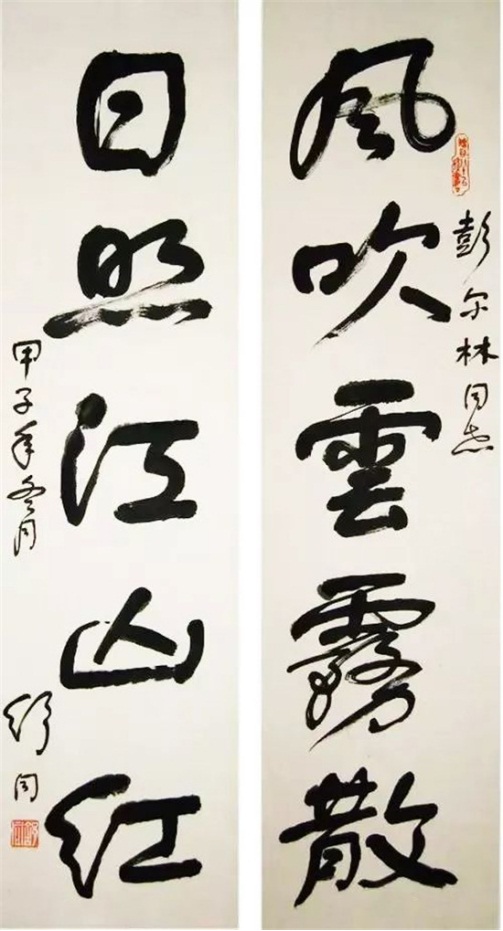 彭尔林同志
风吹雲霧散
日照江山红
甲子年冬月
舒同